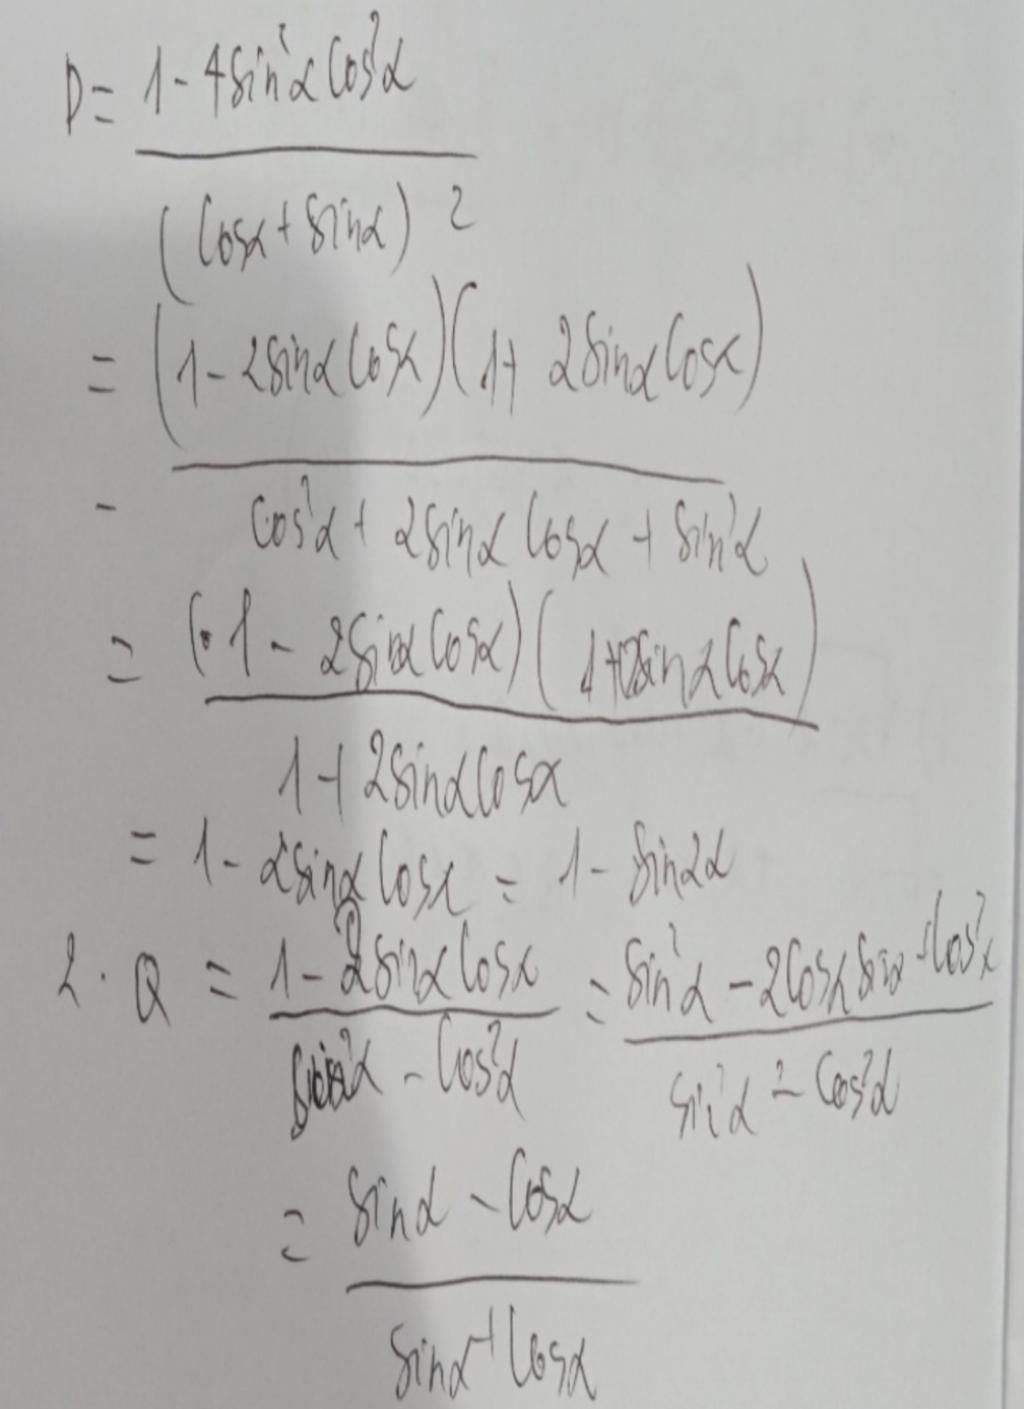 P= 1-4sin²αcos²α
(cosα+sinα)²
= (1-2sinαcosα)(1+2sinαcosα)
- cos²α+2sinαcosα+sin²α
= (1-2sinαcosα)(1+2sinαcosα)
1+2sinαcosα
= 1-2sinαcosα = 1-sin2α
2. Q = 1-2sinαcosα = sin²α-2cosαsinα+cos²α
sin²α-cos²α sin²α-cos²α
= sinα-cosα
sinα+cosα